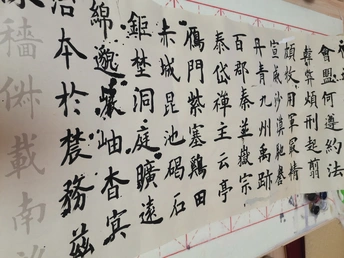 會盟何遵約法
韓弊煩刑起翦
頗牧用軍最精
宣威沙漠馳譽
丹青九州禹跡
百郡秦並嶽宗
泰岱禪主云亭
鴈門紫塞鷄田
赤城昆池碣石
鉅埜洞庭曠遠
綿邈巖岫杳冥
治本於農務茲
穡俶載南